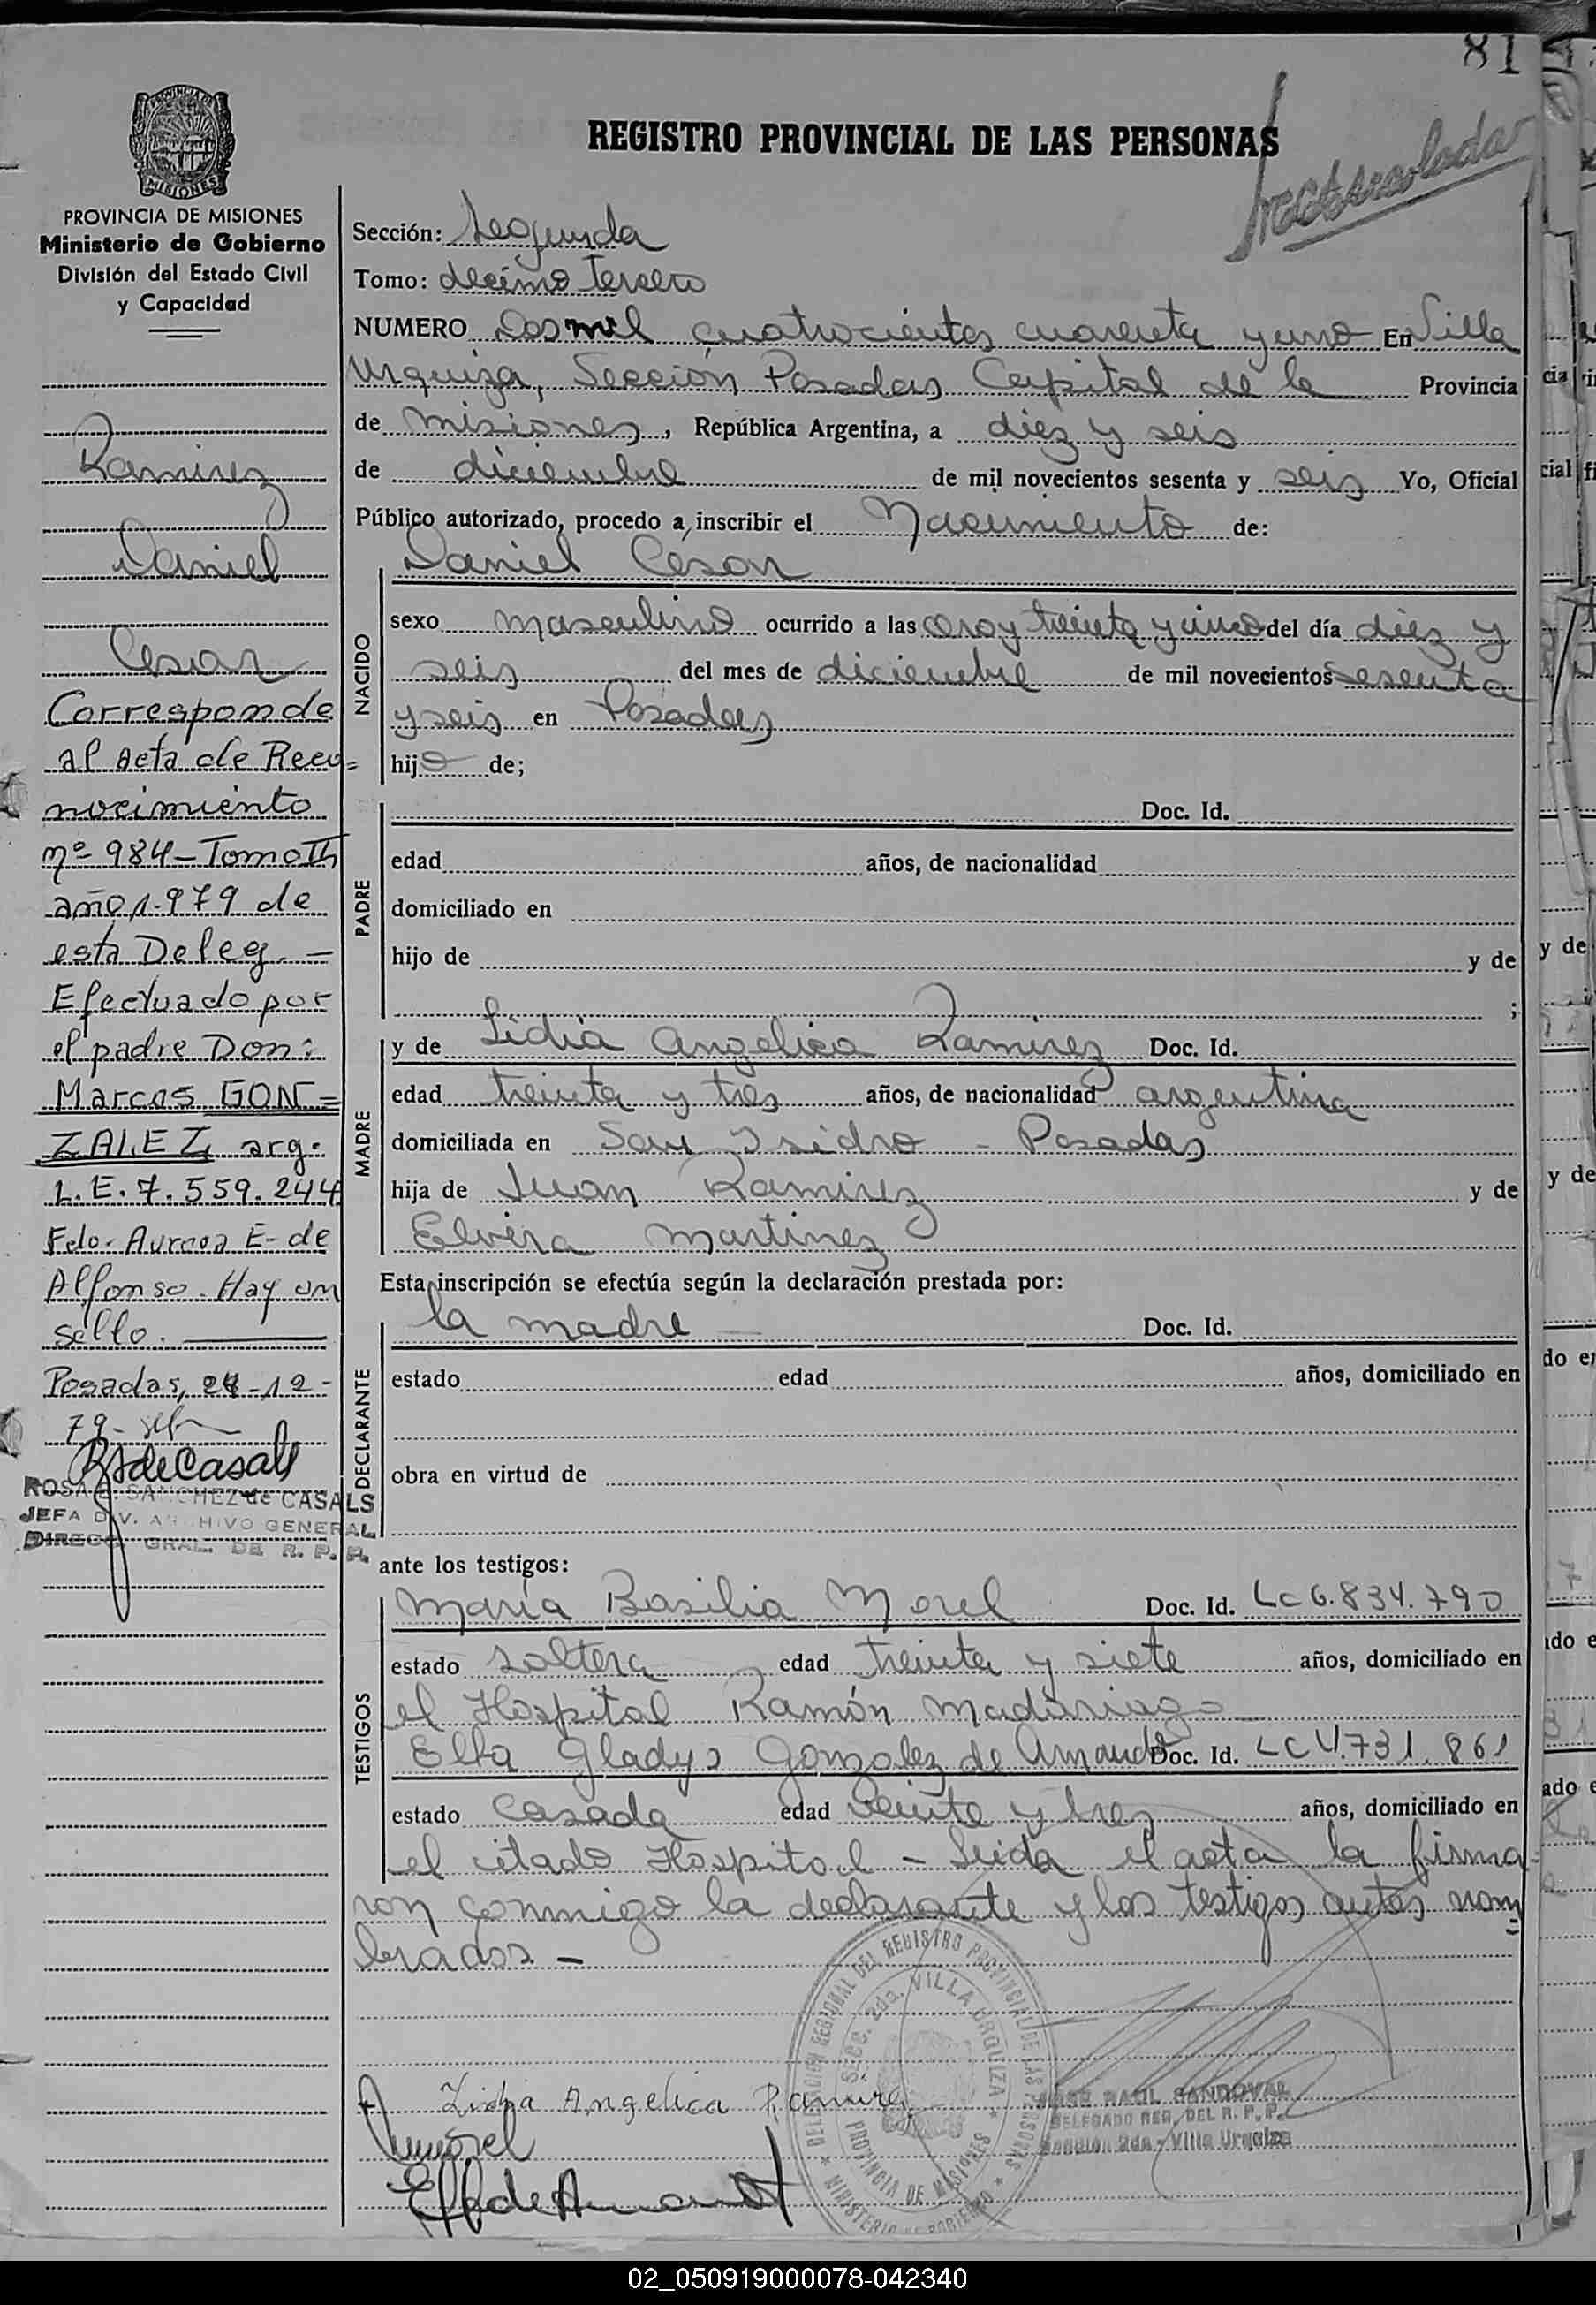 81
REGISTRO PROVINCIAL DE LAS PERSONAS
PROVINCIA DE MISIONES
Ministerio de Gobierno
División del Estado Civil
y Capacidad
Ramirez
Daniel
Cesar
Corresponde
al acta de Reco=
nocimiento
nº 984-Tomo
año 1.979 de
esta Deleg. -
Efectuado por
el padre Don:
Marcos GON=
ZALEZ arg.
L.E. 7.559.244
Fdo. Aurora E. de
Alfonso. Hay un
sello.
Posadas, 24-12-
79-
RSdeCasals
ROSA E. SANCHEZ de CASALS
JEFA DIV. ARCHIVO GENERAL
DIRECC. GRAL. DE R. P. P.
Sección: Segunda
Tomo: decimo tercero
NUMERO Dos mil cuatrocientos cuarenta y uno En Villa
Urquiza, Sección Posadas Capital de la Provincia
de misiones, República Argentina, a diez y seis
de diciembre de mil novecientos sesenta y seis Yo, Oficial
Público autorizado, procedo a inscribir el Nacimiento de:
Daniel Cesar
NACIDO
sexo masculino ocurrido a las cero y treinta y cinco del día diez y
seis del mes de diciembre de mil novecientos sesenta
y seis en Posadas
hijo de;
PADRE
Doc. Id.
edad años, de nacionalidad
domiciliado en
hijo de y de
;
MADRE
y de Lidia Angelica Ramirez Doc. Id.
edad treinta y tres años, de nacionalidad argentina
domiciliada en San Isidro - Posadas
hija de Juan Ramirez y de
Elvira Martinez
Esta inscripción se efectúa según la declaración prestada por:
DECLARANTE
la madre - Doc. Id.
estado edad años, domiciliado en
obra en virtud de
ante los testigos:
TESTIGOS
María Basilia Morel Doc. Id. LC 6.834.790
estado soltera edad treinta y siete años, domiciliado en
el Hospital Ramón Madariaga
Elfa Gladys Gonzalez de Doc. Id. LC 4.731.861
estado casada edad veinte y tres años, domiciliado en
el citado Hospital - Leida el acta la firma=
ron conmigo la declarante y los testigos antes nom=
brados -
DELEGACION REGIONAL DEL REGISTRO PROVINCIAL DE LAS PERSONAS
SECC. 2da. VILLA URQUIZA
PROVINCIA DE MISIONES
MINISTERIO DE GOBIERNO
Lidia Angelica Ramirez
JOSE RAUL SANDOVAL
DELEGADO REG. DEL R. P. P.
Sección 2da - Villa Urquiza
02_050919000078-042340